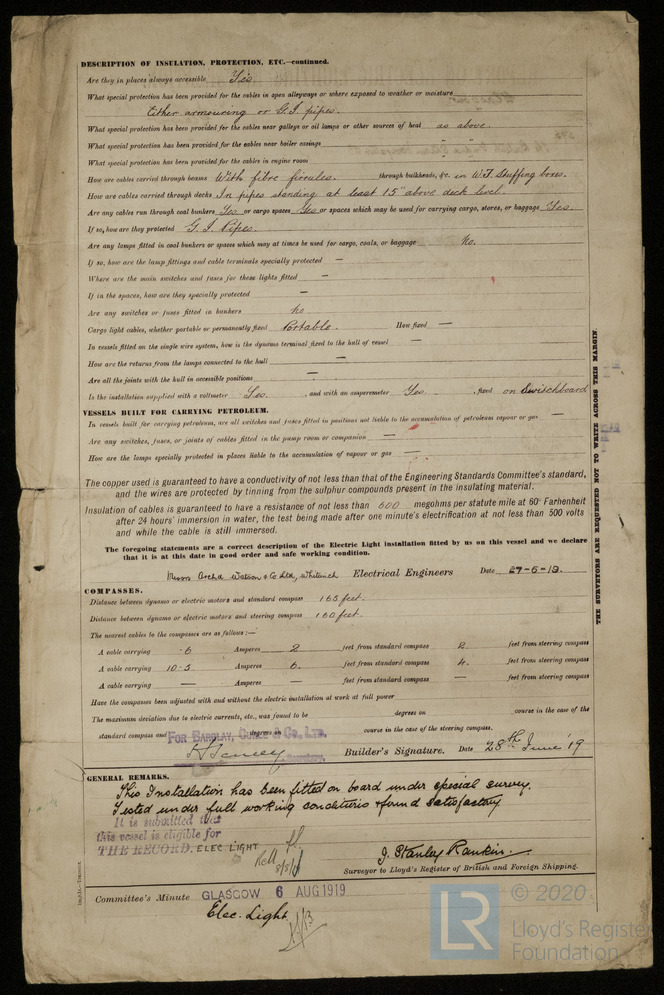 DESCRIPTION OF INSULATION, PROTECTION, ETC.—continued.
Are they in places always accessible Yes
What special protection has been provided for the cables in open alleyways or where exposed to weather or moisture
Either armouring or G.I. pipes.
What special protection has been provided for the cables near galleys or oil lamps or other sources of heat as above.
What special protection has been provided for the cables near boiler casings "
What special protection has been provided for the cables in engine room "
How are cables carried through beams With fibre ferrules. through bulkheads, &c. in W.T. Stuffing boxes.
How are cables carried through decks In pipes standing at least 15" above deck level.
Are any cables run through coal bunkers Yes or cargo spaces Yes or spaces which may be used for carrying cargo, stores, or baggage Yes.
If so, how are they protected G.I. Pipes.
Are any lamps fitted in coal bunkers or spaces which may at times be used for cargo, coals, or baggage No.
If so, how are the lamp fittings and cable terminals specially protected —
Where are the main switches and fuses for these lights fitted —
If in the spaces, how are they specially protected —
Are any switches or fuses fitted in bunkers No
Cargo light cables, whether portable or permanently fixed Portable. How fixed —
In vessels fitted on the single wire system, how is the dynamo terminal fixed to the hull of vessel —
How are the returns from the lamps connected to the hull —
Are all the joints with the hull in accessible positions —
Is the installation supplied with a voltmeter Yes. , and with an amperemeter Yes. , fixed on Switchboard
VESSELS BUILT FOR CARRYING PETROLEUM.
In vessels built for carrying petroleum, are all switches and fuses fitted in positions not liable to the accumulation of petroleum vapour or gas —
Are any switches, fuses, or joints of cables fitted in the pump room or companion —
How are the lamps specially protected in places liable to the accumulation of vapour or gas —
The copper used is guaranteed to have a conductivity of not less than that of the Engineering Standards Committee's standard,
and the wires are protected by tinning from the sulphur compounds present in the insulating material.
Insulation of cables is guaranteed to have a resistance of not less than 600 megohms per statute mile at 60° Farhenheit
after 24 hours' immersion in water, the test being made after one minute's electrification at not less than 500 volts
and while the cable is still immersed.
The foregoing statements are a correct description of the Electric Light installation fitted by us on this vessel and we declare
that it is at this date in good order and safe working condition.
Messrs Archd Watson & Co Ltd, Whiteinch Electrical Engineers Date 27-6-19.
COMPASSES.
Distance between dynamo or electric motors and standard compass 165 feet.
Distance between dynamo or electric motors and steering compass 160 feet.
The nearest cables to the compasses are as follows:—
A cable carrying ·6 Amperes 2 feet from standard compass 2 feet from steering compass
A cable carrying 10·5 Amperes 6. feet from standard compass 4. feet from steering compass
A cable carrying — Amperes — feet from standard compass — feet from steering compass
Have the compasses been adjusted with and without the electric installation at work at full power
The maximum deviation due to electric currents, etc., was found to be degrees on course in the case of the
standard compass and degrees on course in the case of the steering compass.
FOR BARCLAY, CURLE & CO., LTD.
Builder's Signature. Date 28th June '19
GENERAL REMARKS.
This Installation has been fitted on board under special survey.
Tested under full working conditions & found satisfactory
It is submitted that
this vessel is eligible for
THE RECORD. ELEC LIGHT
J. Stanley Rankin.
Surveyor to Lloyd's Register of British and Foreign Shipping.
Committee's Minute GLASGOW 6 AUG 1919
Elec. Light
THE SURVEYORS ARE REQUESTED NOT TO WRITE ACROSS THIS MARGIN.
LR
© 2020
Lloyd's Register
Foundation